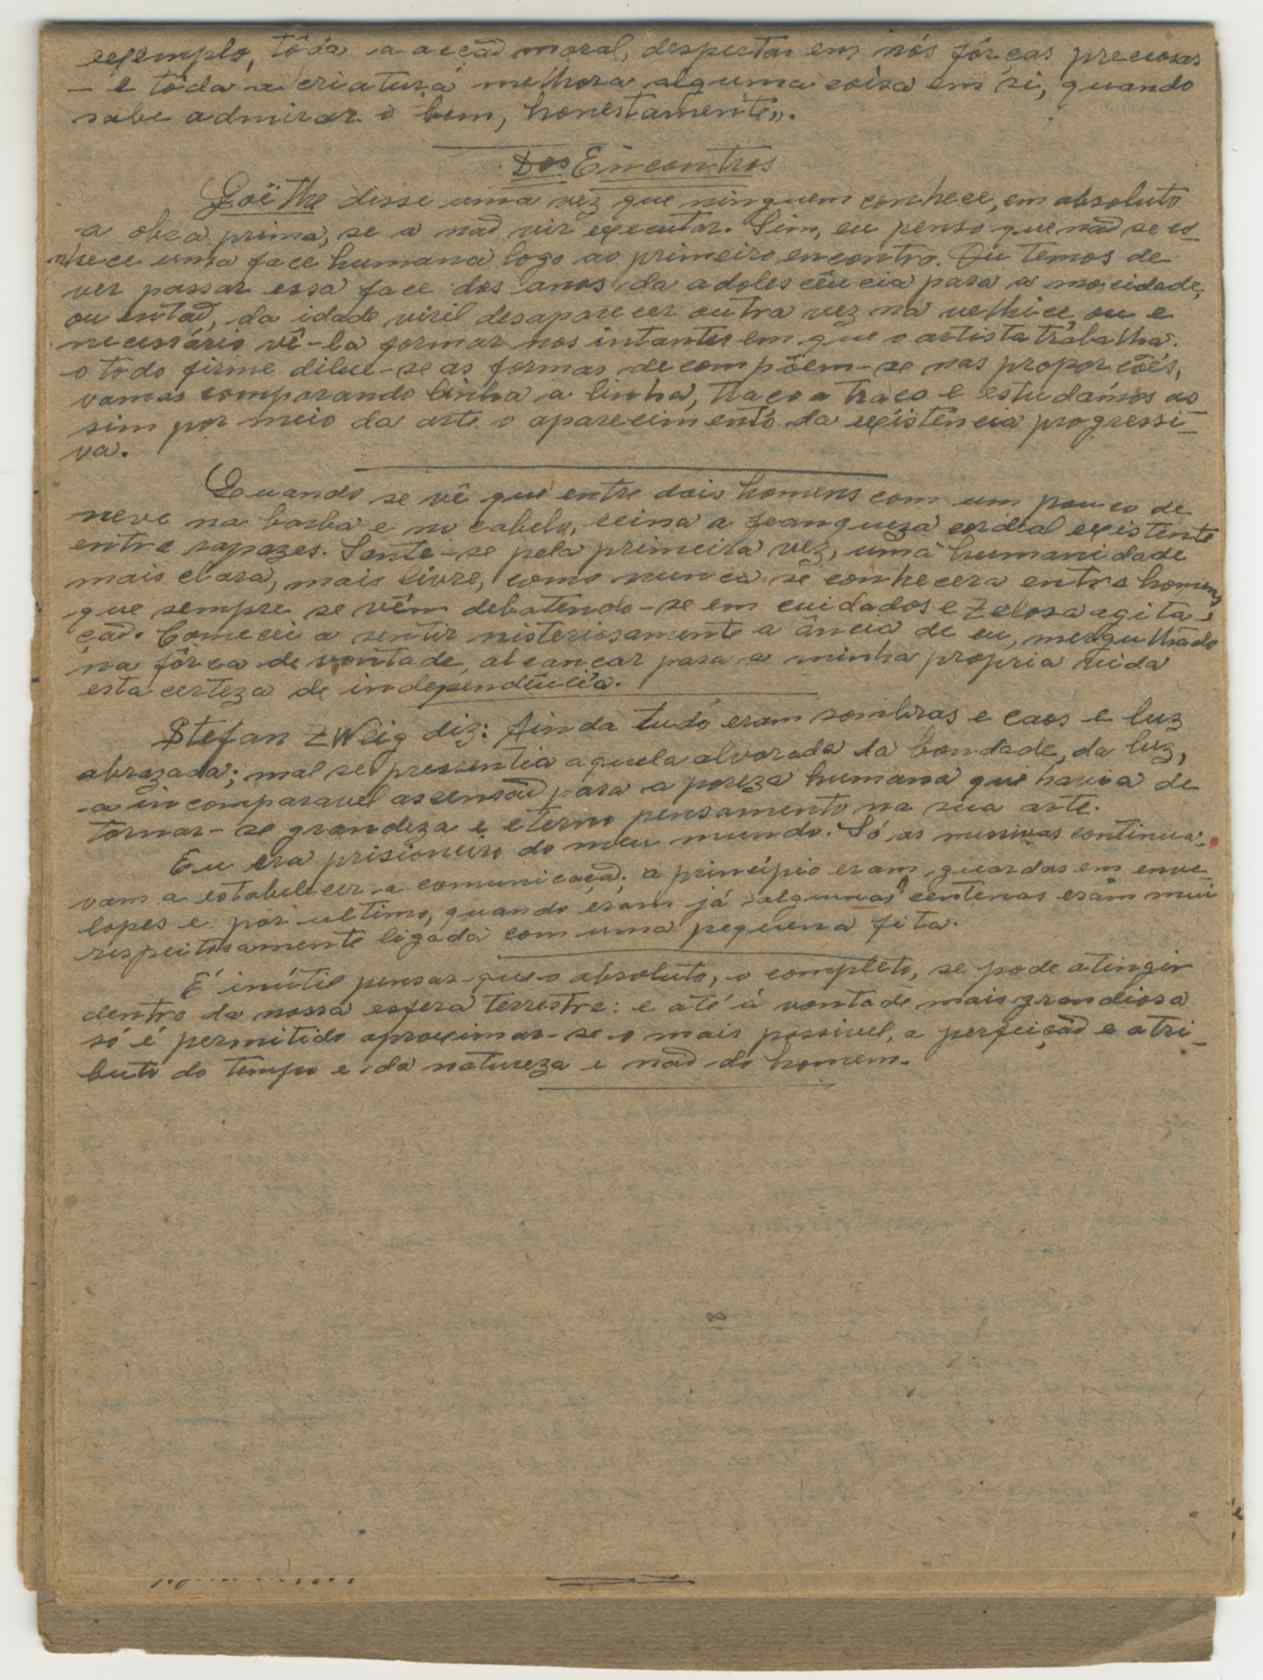 exemplo, tôda a acção moral, despertar em nós fôrças preciosas
- e tôda a criatura melhora alguma coisa em si, quando
sabe admirar o bem, honestamente».
Dos Encontros
Goëthe disse uma vez que ninguem conhece, em absoluto
a obra prima, se a não vir executar. Sim, eu penso que não se co-
nhece uma face humana logo ao primeiro encontro. Ou temos de
ver passar essa face dos anos da adolescência para a mocidade,
ou então, da idade viril desaparecer outra vez na velhice, ou e
necessário vê-la formar nos intantes em que o artista trabalha.
o todo firme dilue-se as formas decompõem-se nas proporcões,
vamos comparando linha a linha, traço a traço e estudámos as
sim por meio da arte o aparecimento da existência progressi-
va.
Quando se vê que entre dois homens com um pouco de
neve na barba e no cabelo, reina a franqueza cordial existente
entre rapazes. Sente-se pela primeira vez, uma humanidade
mais clara, mais livre, como nunca se conhecera entre homens
que sempre se vêm debatendo-se em cuidados e zelosa agita-
ção. Comecei a sentir misteriosamente a ância de eu, mergulhado
na fôrça de vontade, alcançar para a minha propria vida
esta certeza de independência.
Stefan ZWeig diz: Ainda tudo eram sombras e caos e luz
abrazada; mal se pressentia aquela alvorada da bondade, da luz,
a incomparavel ascensão para a pureza humana que havia de
tornar-se grandeza e eterno pensamento na sua arte.
Eu era prisioneiro do meu mundo. Só as missivas continua-
vam a estabelecer a comunicação; a princípio eram guardas em enve-
lopes e por ultimo, quando eram já algumas centenas eram mui
respeitosamente ligada com uma pequena fita.
É inútil pensar que o absoluto, o completo, se pode atingir
dentro da nossa esfera terrestre: e até á vontade mais grandiosa
só é permitido aproximar-se o mais possivel, a perfeição e atri-
buto do tempo e da natureza e não do homem.